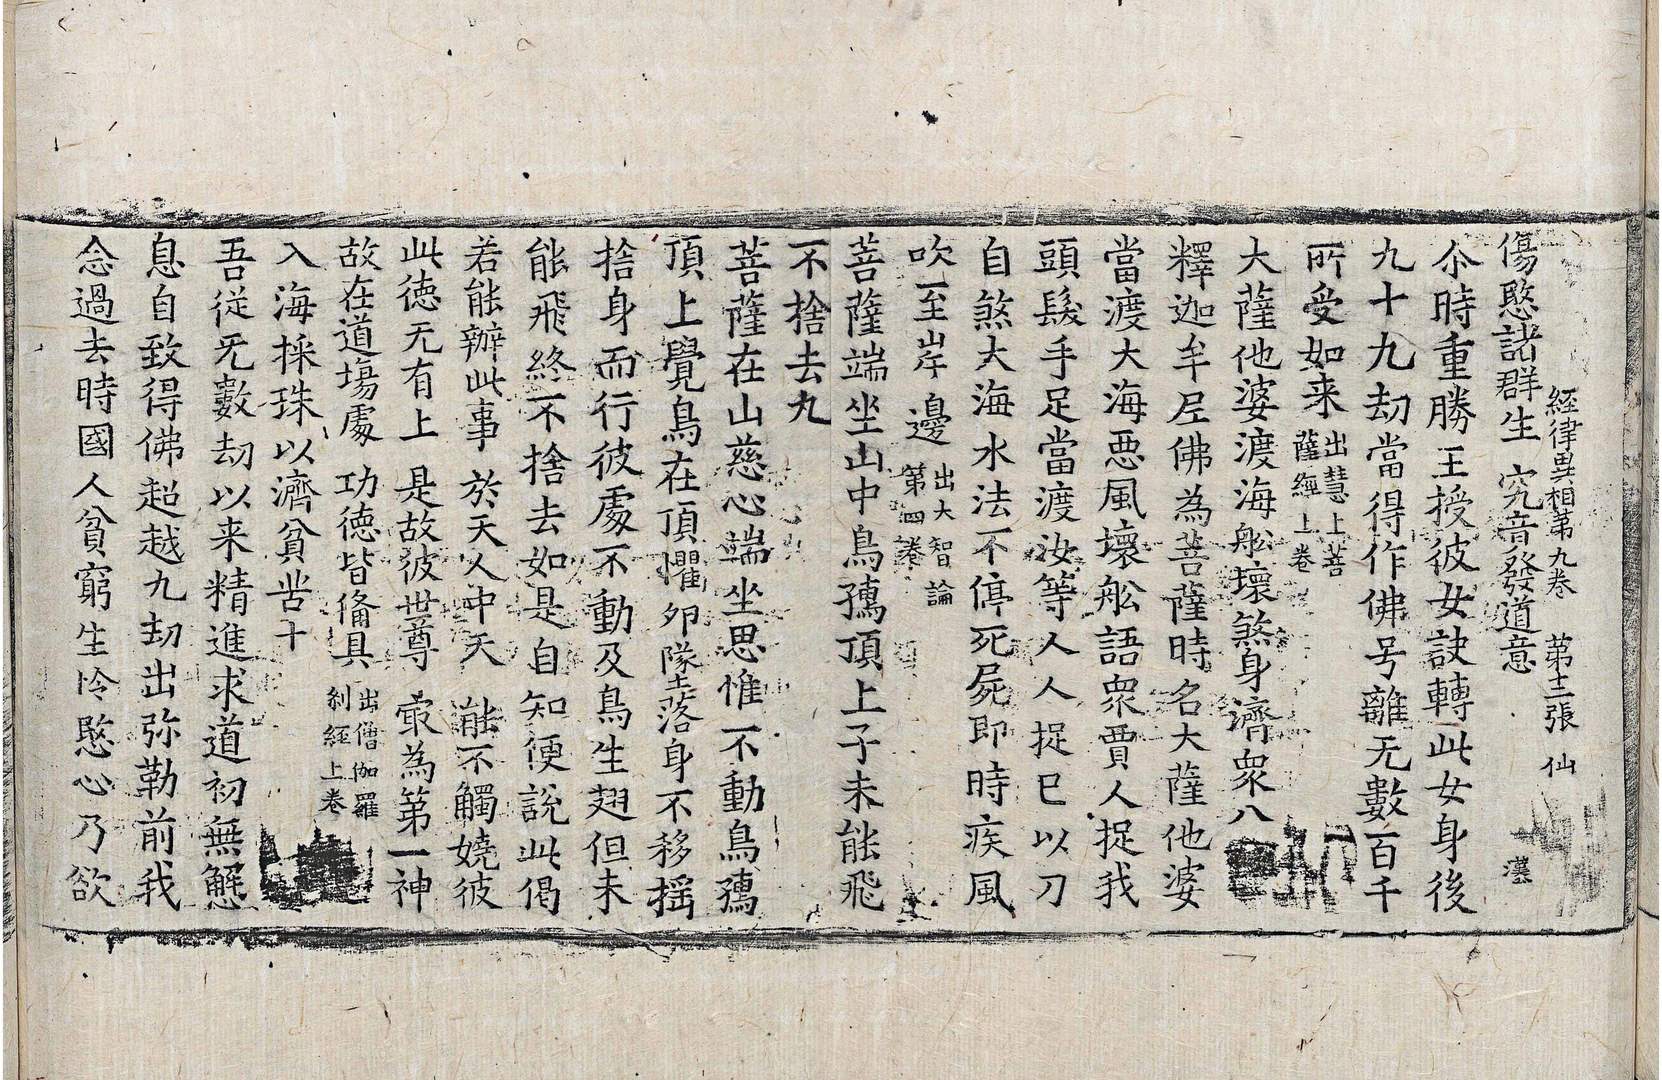 經律異相苐九卷 苐十二張 仙 漢
傷愍諸群生 究音發道意
尒時重勝王授彼女訣轉此女身後
九十九刧當得作佛号離无數百千
所受如来出慧上菩薩經上卷
大薩他婆渡海船壞煞身濟衆八
釋迦牟尼佛為菩薩時名大薩他婆
當渡大海惡風壞舩語衆賈人捉我
頭髮手足當渡汝等人人捉已以刀
自煞大海水法不停死屍即時疾風
吹至岸邊出大智論第四卷
菩薩端坐山中鳥鷇頂上子未能飛
不捨去九
菩薩在山慈心端坐思惟不動鳥鷇
頂上覺鳥在頂懼夘墜落身不移揺
捨身而行彼處不動及鳥生翅但未
能飛終不捨去如是自知便說此偈
若能辦此事 於天人中天 能不觸嬈彼
此徳无有上 是故彼世尊 㝡為第一神
故在道塲處 功徳皆俻具出僧伽羅剎經上卷
入海採珠以濟貧苦十
吾従无數刧以来精進求道初無懈
息自致得佛超越九刧出弥勒前我
念過去時國人貧窮生怜愍心乃欲